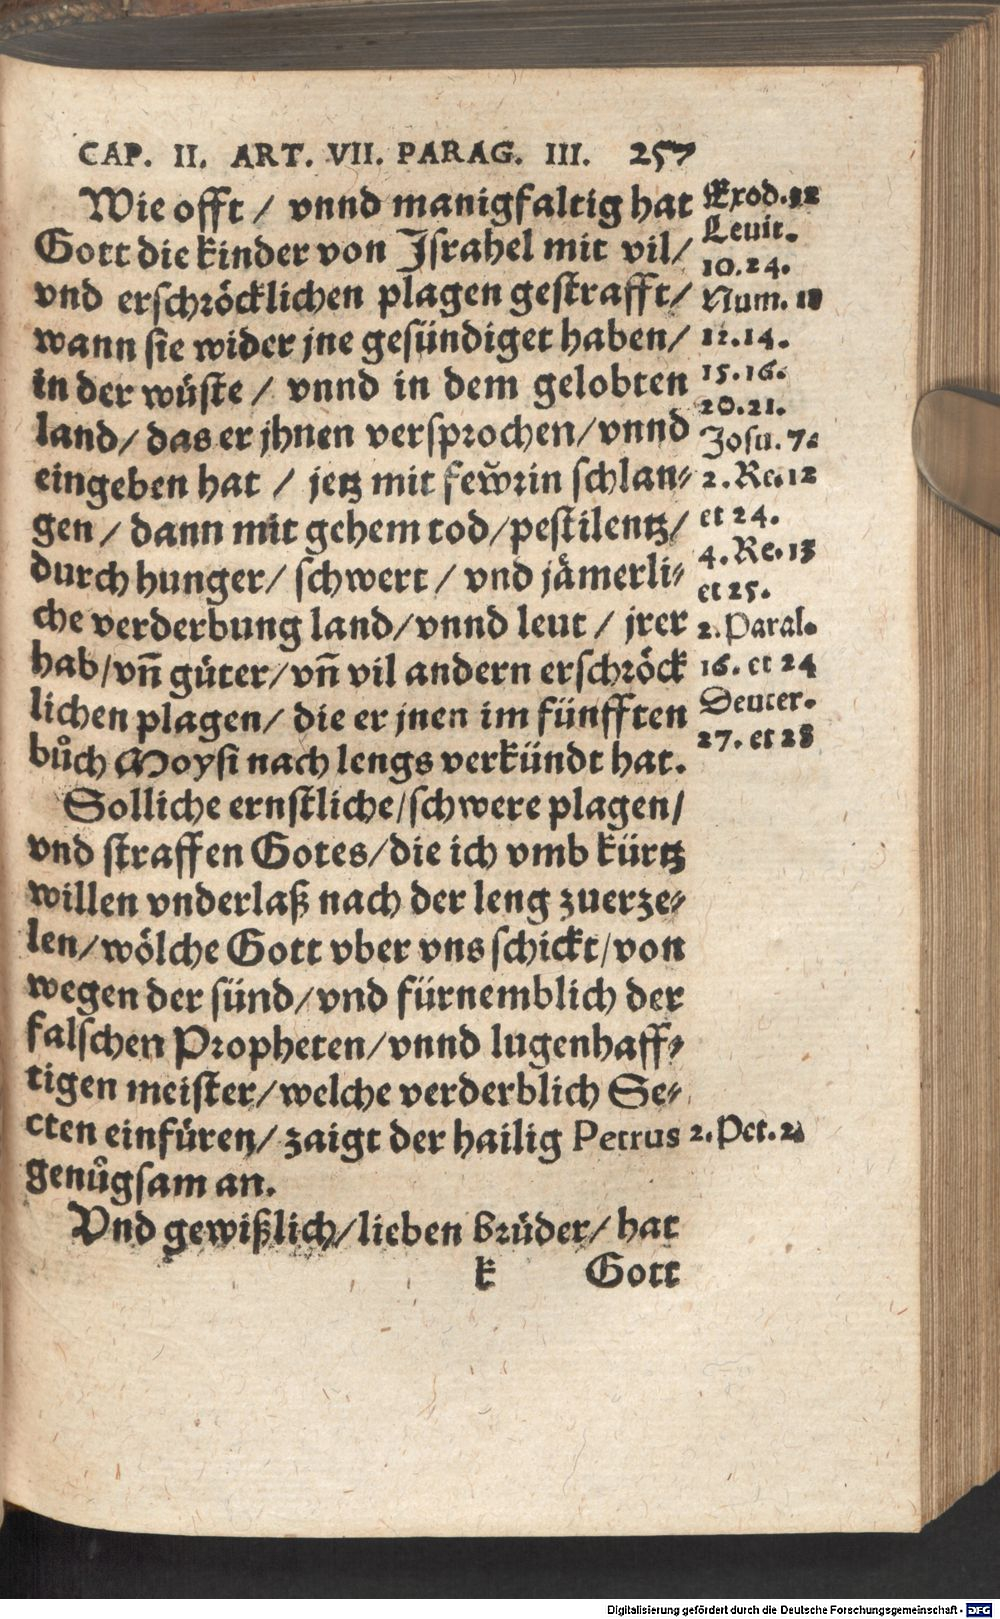 CAP. II. ART. VII. PARAG. III. 257
Wie offt / vnnd manigfaltig hat
Gott die kinder von Jsrahel mit vil/
vnd erschröcklichen plagen gestrafft/
wann sie wider jne gesündiget haben/
in der wüste / vnnd in dem gelobten
land/ das er jhnen versprochen/vnnd
eingeben hat / jetz mit fewrin schlan⸗
gen / dann mit gehem tod/pestilentz/
durch hunger/ schwert / vnd jämerli⸗
che verderbung land/vnnd leut / jrer
hab/vn̄ güter/vn̄ vil andern erschröck
lichen plagen/ die er jnen im fünfften
bůch Moysi nach lengs verkündt hat.
Solliche ernstliche/schwere plagen/
vnd straffen Gotes/die ich vmb kürtz
willen vnderlaß nach der leng zuerze⸗
len/wölche Gott vber vns schickt/von
wegen der sünd/vnd fürnemblich der
falschen Propheten/vnnd lugenhaff⸗
tigen meister/welche verderblich Se⸗
cten einfüren/ zaigt der hailig Petrus
genůgsam an.
Vnd gewißlich/lieben brüder/ hat
k Gott
Exod.32
Leuit.
10.24.
Num. 11
12.14.
15.16.
20.21.
Josu. 7.
2. Re.12
et 24.
4. Re.13
et 25.
2.Paral.
16. et 24
Deuter.
27. et 28
2.Pet.2.
Digitalisierung gefördert durch die Deutsche Forschungsgemeinschaft - DFG